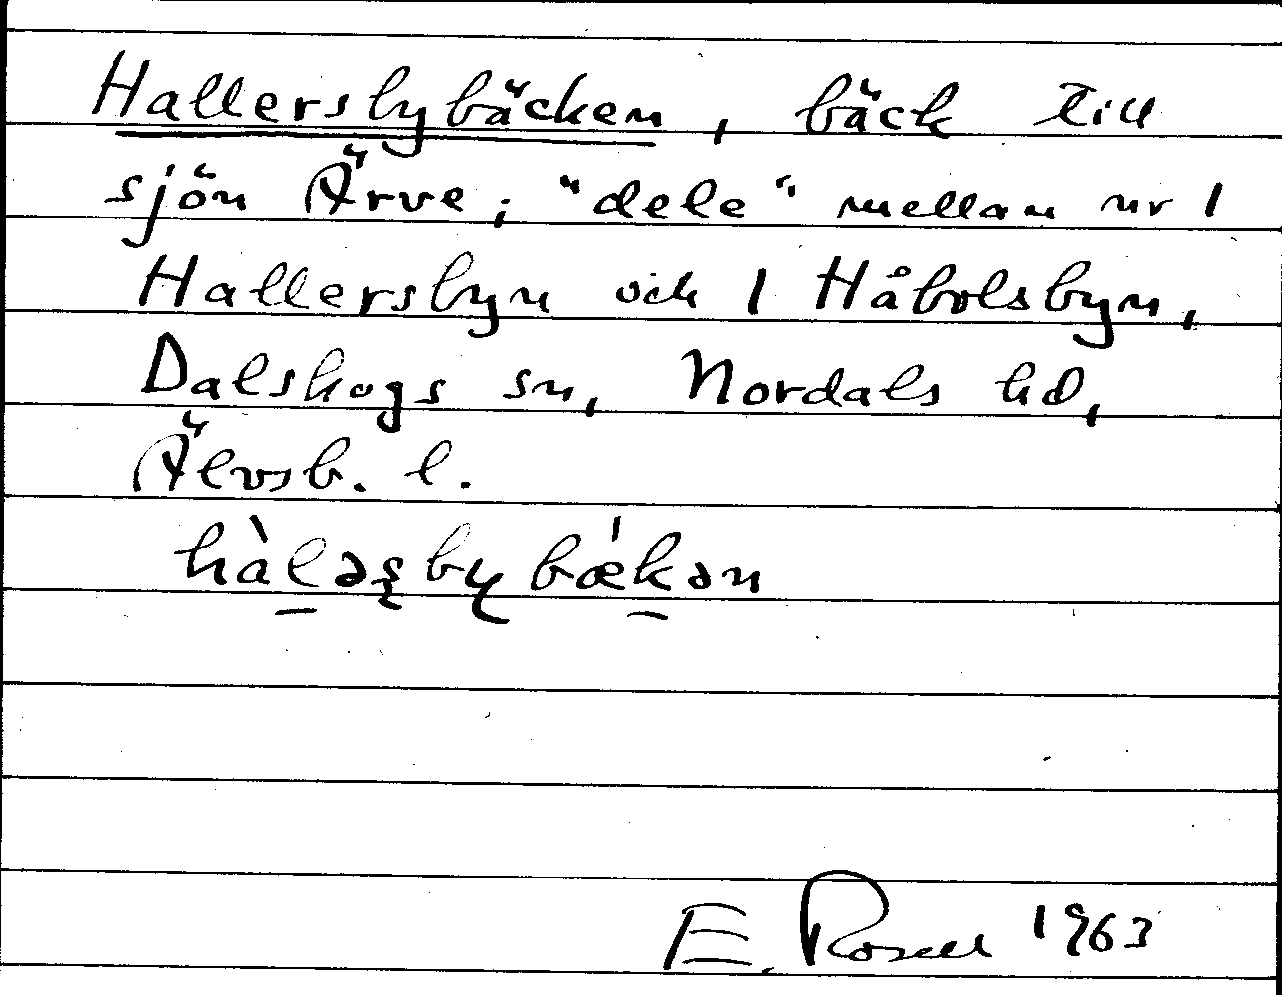 Hallersbybäcken, bäck till
sjön Ärve; "dele" mellan nr 1
Hallersbyn och 1 Håbolsbyn,
Dalskogs sn, Nordals hd,
Älvsb. l.
hàləʂby bǽkən
E. Rosell 1963